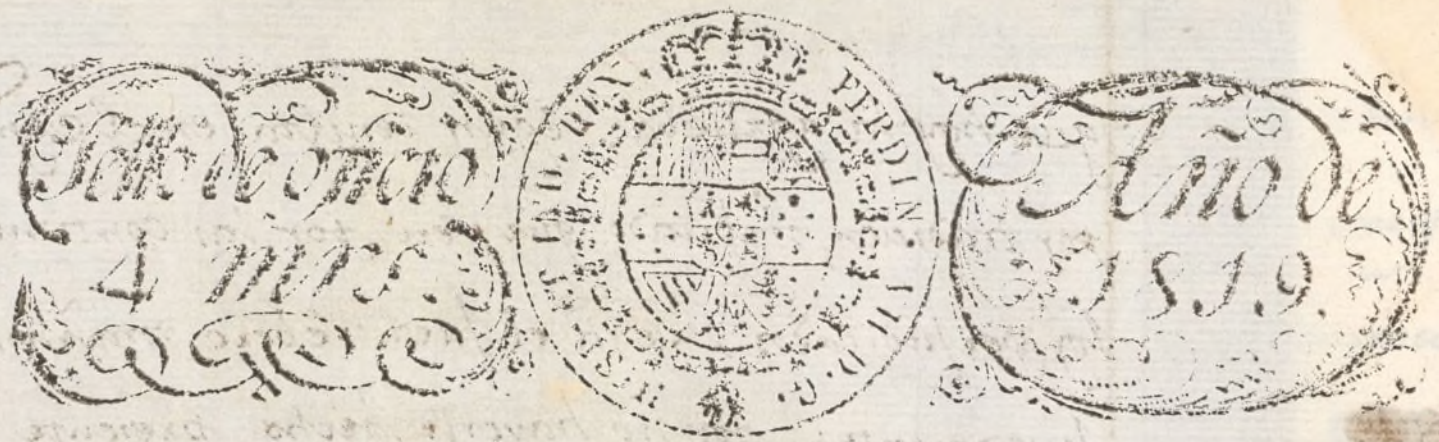 Sello de oficio
4 mrs.
FERDIN. VII D. G. HISP. ET IND. REX.
Año de
1819.